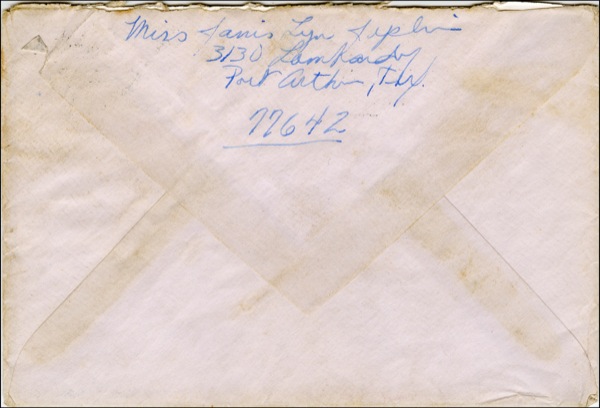 Miss Janis Lyn Joplin
3130 Lombardy
Port Arthur, Tex.
77642